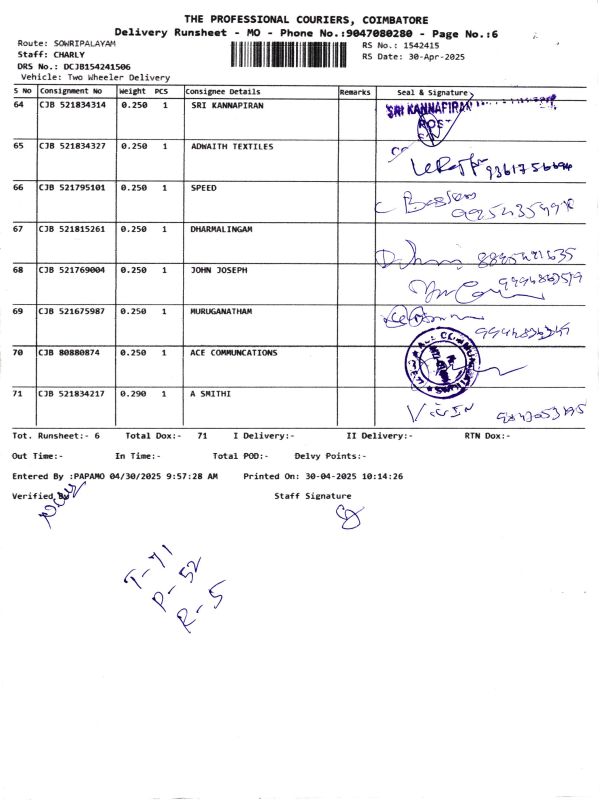 THE PROFESSIONAL COURIERS, COIMBATORE
Delivery Runsheet - MO - Phone No.:9047080280 - Page No.:6
Route: SOWRIPALAYAM
RS No.: 1542415
Staff: CHARLY
RS Date: 30-Apr-2025
DRS No.: DCJB154241506
Vehicle: Two Wheeler Delivery
S No Consignment No Weight PCS Consignee Details Remarks Seal & Signature
64 CJB 521834314 0.250 1 SRI KANNAPIRAN SRI KANNAPIRAN
65 CJB 521834327 0.250 1 ADWAITH TEXTILES
66 CJB 521795101 0.250 1 SPEED
67 CJB 521815261 0.250 1 DHARMALINGAM
68 CJB 521769004 0.250 1 JOHN JOSEPH
69 CJB 521675987 0.250 1 MURUGANATHAM
70 CJB 80880874 0.250 1 ACE COMMUNCATIONS
71 CJB 521834217 0.290 1 A SMITHI
Tot. Runsheet:- 6 Total Dox:- 71 I Delivery:- II Delivery:- RTN Dox:-
Out Time:- In Time:- Total POD:- Delvy Points:-
Entered By :PAPAMO 04/30/2025 9:57:28 AM Printed On: 30-04-2025 10:14:26
Verified By Staff Signature
T-71
P-52
R-5